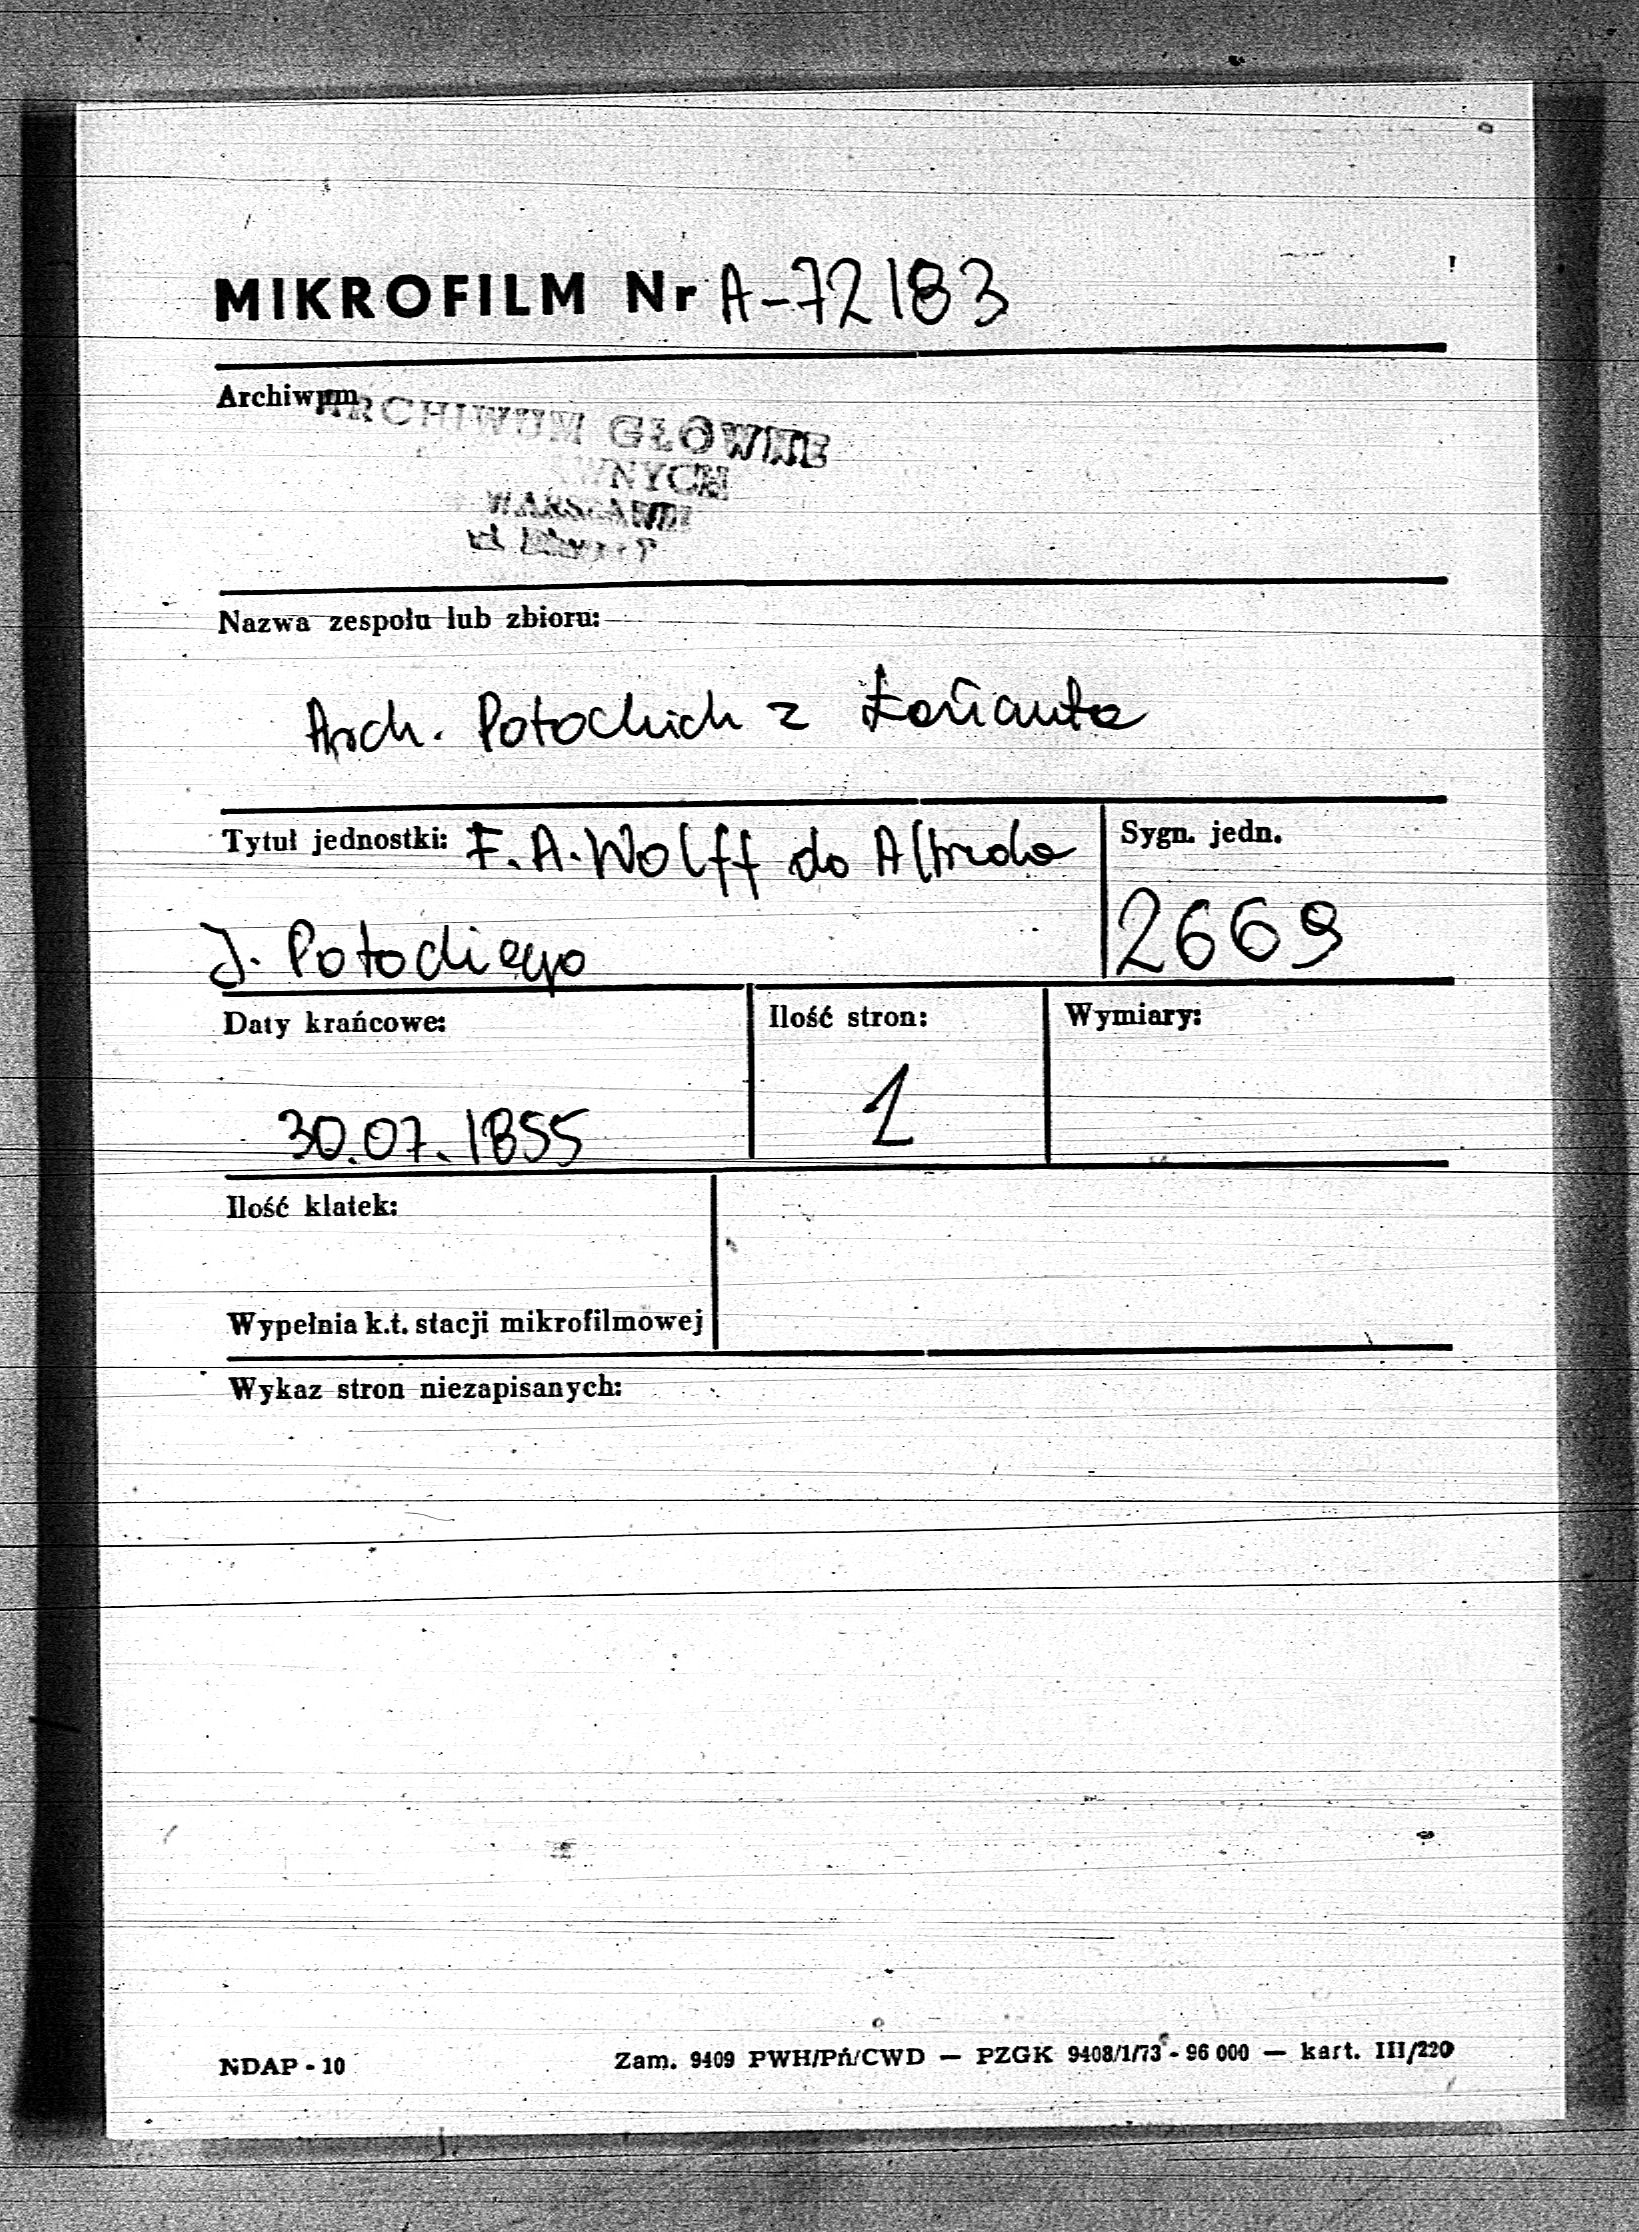 MIKROFILM Nr A-72183
Archiwum
ARCHIWUM GŁÓWNE
WNYCH
WARSZAWIE
ul
Nazwa zespołu lub zbioru:
Arch. Potockich z Łańcuta
Tytuł jednostki: F. A. Wolff do Alfreda
Sygn. jedn.
J. Potockiego
2669
Daty krańcowe:
Ilość stron:
Wymiary:
30.07.1855
1
Ilość klatek:
Wypełnia k.t. stacji mikrofilmowej
Wykaz stron niezapisanych:
NDAP - 10
Zam. 9409 PWH/Pń/CWD — PZGK 9408/1/73 - 96 000 — kart. III/220